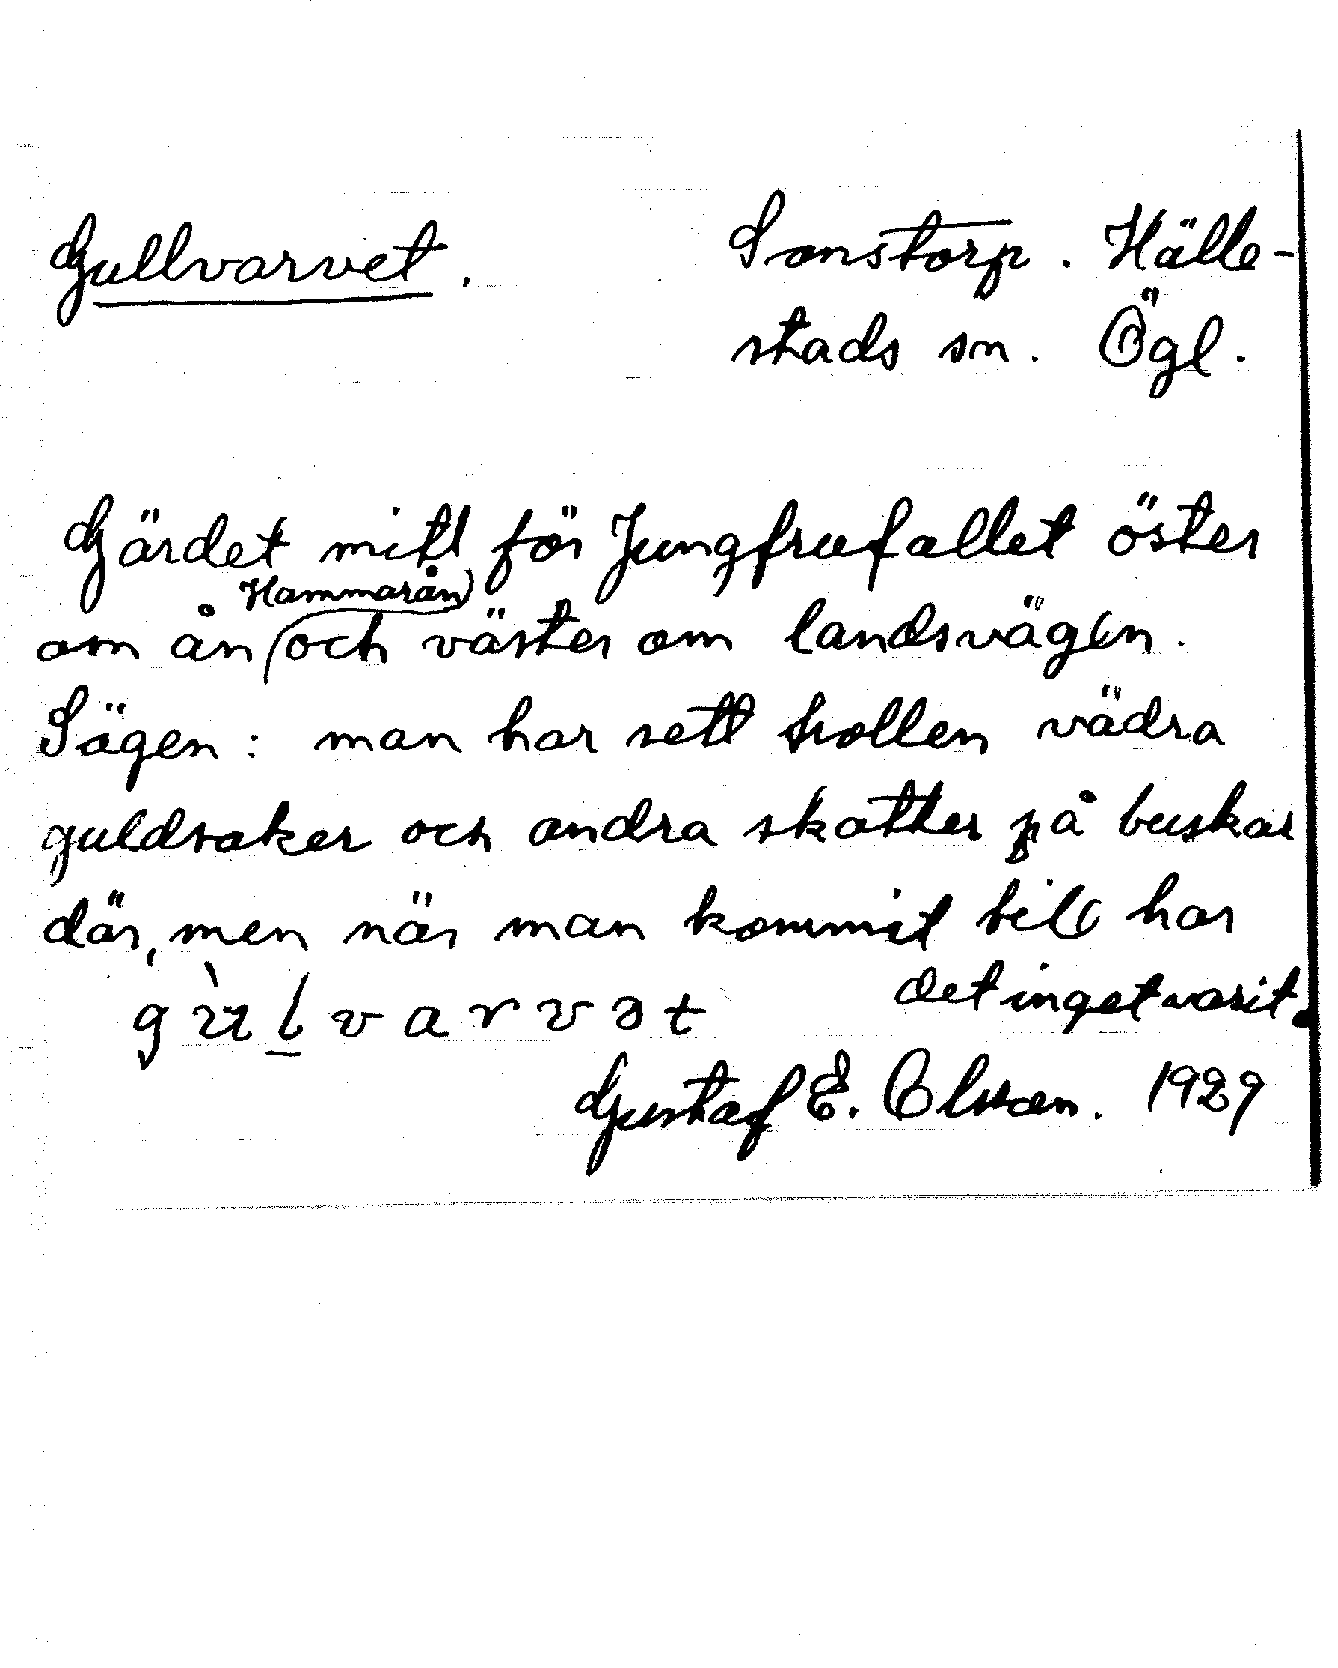 Gullvarvet. Sonstorp. Hälle-
stads sn. Ögl.
Gärdet mitt för Jungfrufallet öster
Hammarån)
om ån (och väster om landsvägen.
Sägen: man har sett trollen vädra
guldsaker och andra skatter på buskar
där, men när man kommit till har
det inget varit.
gùlvarvət
Gustaf E. Olsson. 1929